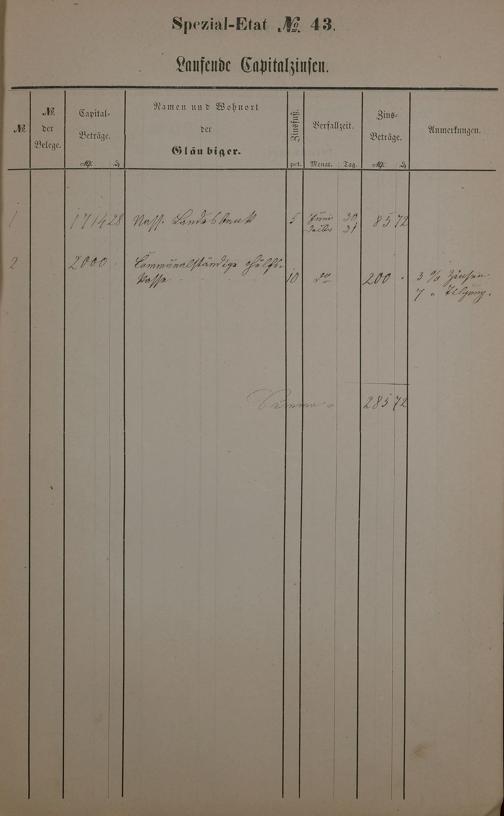 Spezial-Etat № 43.
Laufende Capitalzinsen.
№
№ der Belege.
Capital-Beträge.
Namen und Wohnort
der
Gläubiger.
Zinsfuß.
Verfallzeit.
Zins-Beträge.
Anmerkungen.
pct. Monat. Tag.
1 1714 28 Nass. Landesbank 5 Juni 30 85 72
Dezbr 31
2 2000 Communalständige Hülfs-
kasse 10 do 200 3 % Zinsen
7 " Tilgung.
Summa 285 72